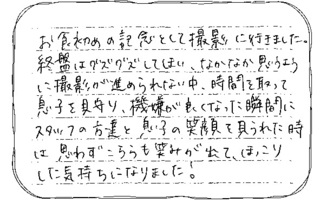 お食初めの記念として撮影に行きました。
終盤はグズグズしてしまい、なかなか思うよう
に撮影が進められない中、時間を取って
息子を見守り、機嫌が良くなった瞬間に
スタッフの方達と息子の笑顔を見られた時
は思わずこちらも笑みが出て、ほっこり
した気持ちになりました!